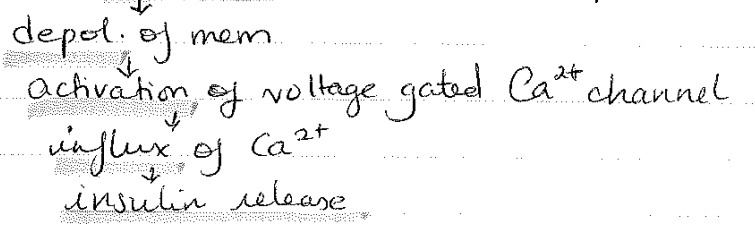 ↓
depol. of mem
↓
activation of voltage gated Ca²⁺ channel
↓
influx of Ca²⁺
↓
insulin release